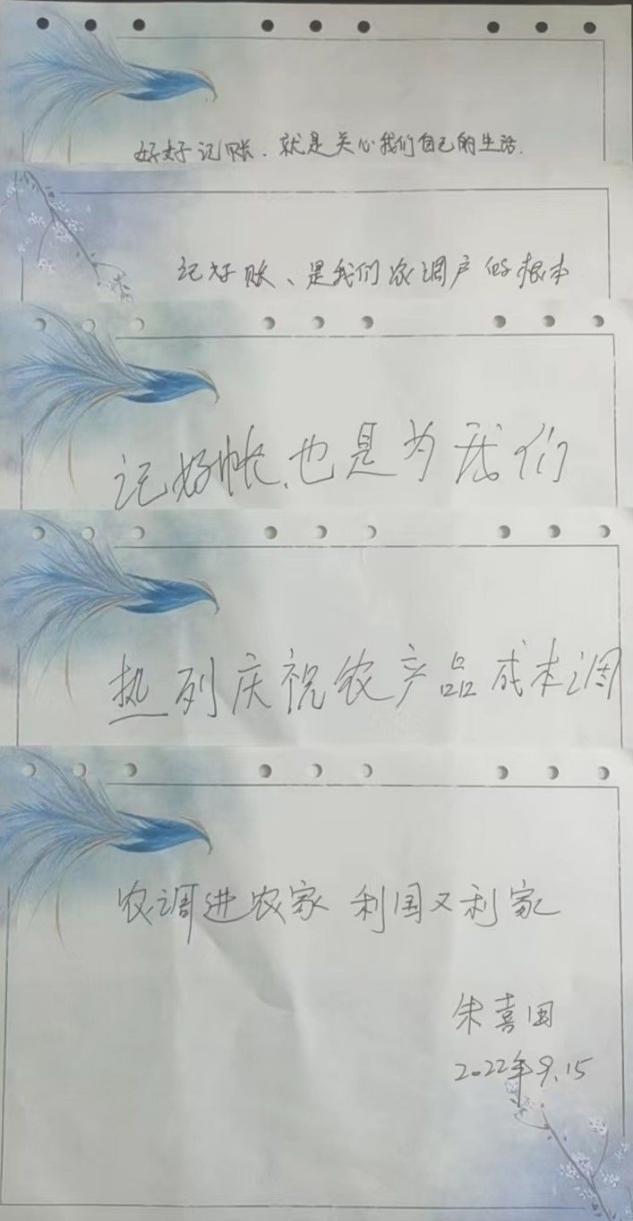 好好记账，就是关心我们自己的生活.
记好账、是我们农调户的根本
记好帐，也是为我们
热列庆祝农产品成本调
农调进农家 利国又利家
朱喜国
2022年9.15